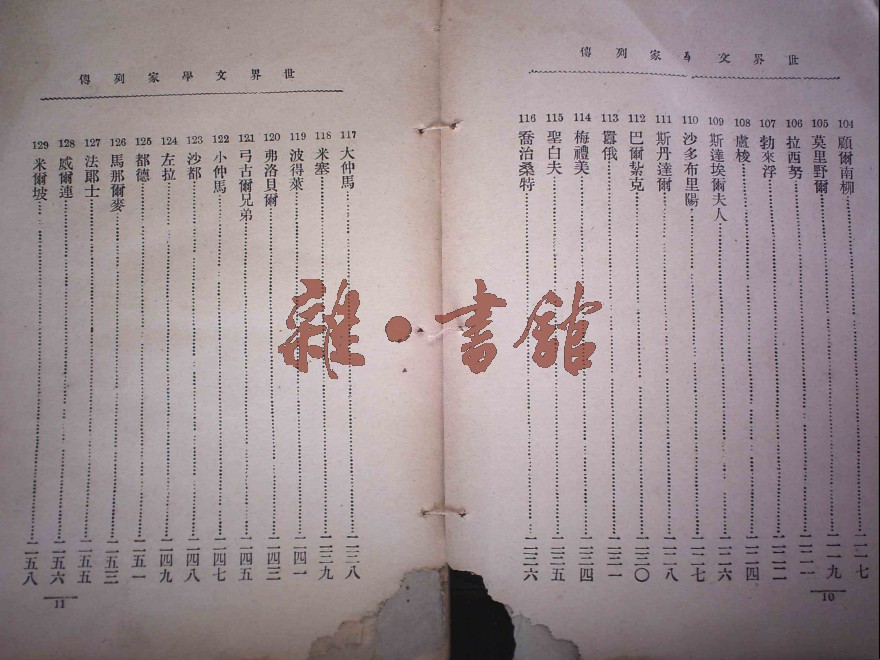 世界文學家列傳
104 顧爾南柳……二一七
105 莫里野爾……二一九
106 拉西努……二二二
107 勃來浮……二二三
108 盧梭……二二四
109 斯達埃爾夫人……二二六
110 沙多布里陽……二二七
111 斯丹達爾……二二八
112 巴爾紮克……二三〇
113 囂俄……二三一
114 梅禮美……二三四
115 聖白夫……二三五
116 喬治桑特……二三六
10
世界文學家列傳
117 大仲馬……二三八
118 米塞……二三九
119 波得萊……二四一
120 弗洛貝爾……二四三
121 弓古爾兄弟……二四五
122 小仲馬……二四七
123 沙都……二四八
124 左拉……二四九
125 都德……二五一
126 馬那爾麥……二五三
127 法郎士……二五五
128 威爾連……二五六
129 米爾坡……二五八
11
雜·書館